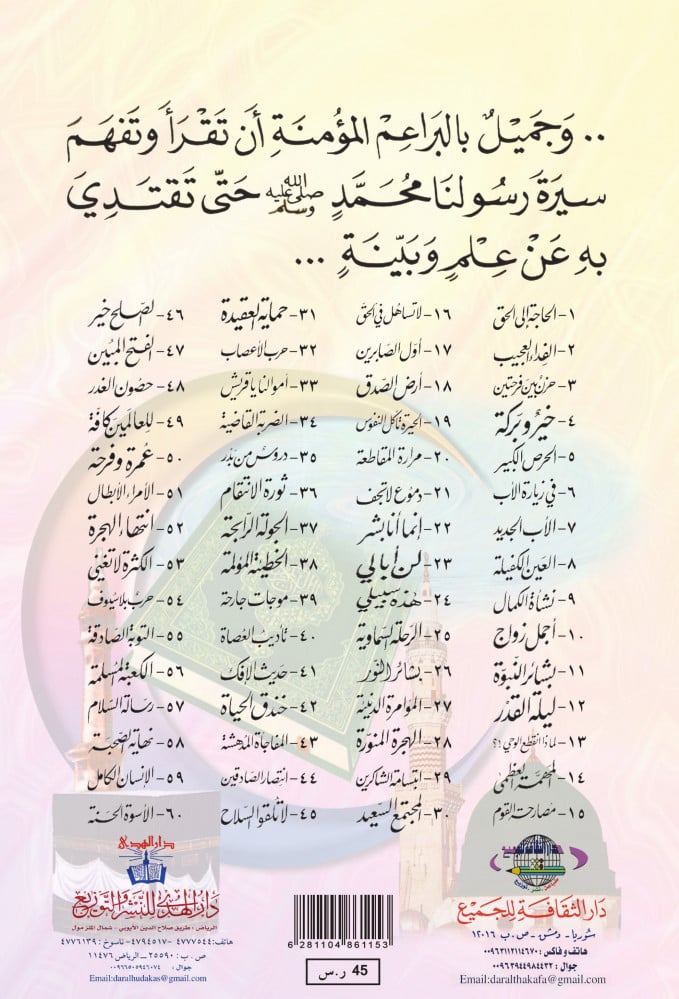 .. وَجَمِيْلٌ بالبَرَاعِمِ المؤُمنَةِ أَن تَقْرَأَ وتَفهَمَ
سيرَةَ رَسُولنَا مُحَمَّدٍ صلى الله عليه وسلم حَتّى تَقتَدِيَ
بهِ عَنْ عِلْمٍ وَبَيّنَةٍ ...
١- الحاجة إلى الحق
٢- الفداء العجيب
٣- حزن بين فرحتين
٤- خير وبركة
٥- الحرص الكبير
٦- في زيارة الأب
٧- الأب الجديد
٨- العين الكفيلة
٩- نشأة الكمال
١٠- أجمل زواج
١١- بشائر النبوّة
١٢- ليلة القدْر
١٣- لماذا انقطع الوحي ؟!
١٤- المهمة العظمى
١٥- مصارحة القوم
١٦- لا تساهل في الحق
١٧- أوّل الصابرين
١٨- أرض الصدق
١٩- الحيرة تأكل النفوس
٢٠- مرارة المقاطعة
٢١- دموع لا تجف
٢٢- إنما أنا بشر
٢٣- لن أبالي
٢٤- هذه سبيلي
٢٥- الرحلة السماوية
٢٦- بشائر النّور
٢٧- المؤامرة الدنيئة
٢٨- الهجرة المنوّرة
٢٩- ابتسامة الشاكرين
٣٠- المجتمع السعيد
٣١- حماية العقيدة
٣٢- حرب الأعصاب
٣٣- أموالنا يا قريش
٣٤- الضربة القاضية
٣٥- دروس من بدْر
٣٦- ثورة الانتقام
٣٧- الجولة الرابحة
٣٨- الخطيئة المؤلمة
٣٩- موجات جارحة
٤٠- تأديب العصاة
٤١- حديث الإفك
٤٢- خندق الحياة
٤٣- المفاجأة المدهشة
٤٤- انتصار الصادقين
٤٥- لا تلقوا السلاح
٤٦- الصلح خير
٤٧- الفتح المبين
٤٨- حصون الغدر
٤٩- للعالمين كافّة
٥٠- عُمرة وفرحة
٥١- الأمراء الأبطال
٥٢- انتهاء الهجرة
٥٣- الكثرة لا تغني
٥٤- حرب بلا سيوف
٥٥- التوبة الصادقة
٥٦- الكعبة المسلمة
٥٧- رسالة السلام
٥٨- نهاية الصحبة
٥٩- الإنسان الكامل
٦٠- الأسوة الحسنة
دَارُ الثقافَة للجَميع
سُوريا - دمشق - ص.ب ١٢٠١٦
هاتف وفاكس : ٠٠٩٦٣١١٢١١٤٦٧٠
جوال : ٠٠٩٦٣٩٤٤٩٨٤٤٣٢
Email:daralthakafa@gmail.com
دار الهدى
دَارُ الهُدى للنّشر والتّوزيع
الرياض - طريق صلاح الدين الأيوبي - شمال الملز مول
هاتف: ٤٧٧٧٥٤٤ - ٤٧٩٤٥١٧ - ناسوخ : ٤٧٧٦١٣٩
ص . ب : ٢٥٥٩٠ - الرياض ١١٤٧٦
جوال : ٠٠٩٦٦٥٠٥٩٤٦٠٧٤
Email:daralhudakas@gmail.com
6 281104 861153
45 ر.س